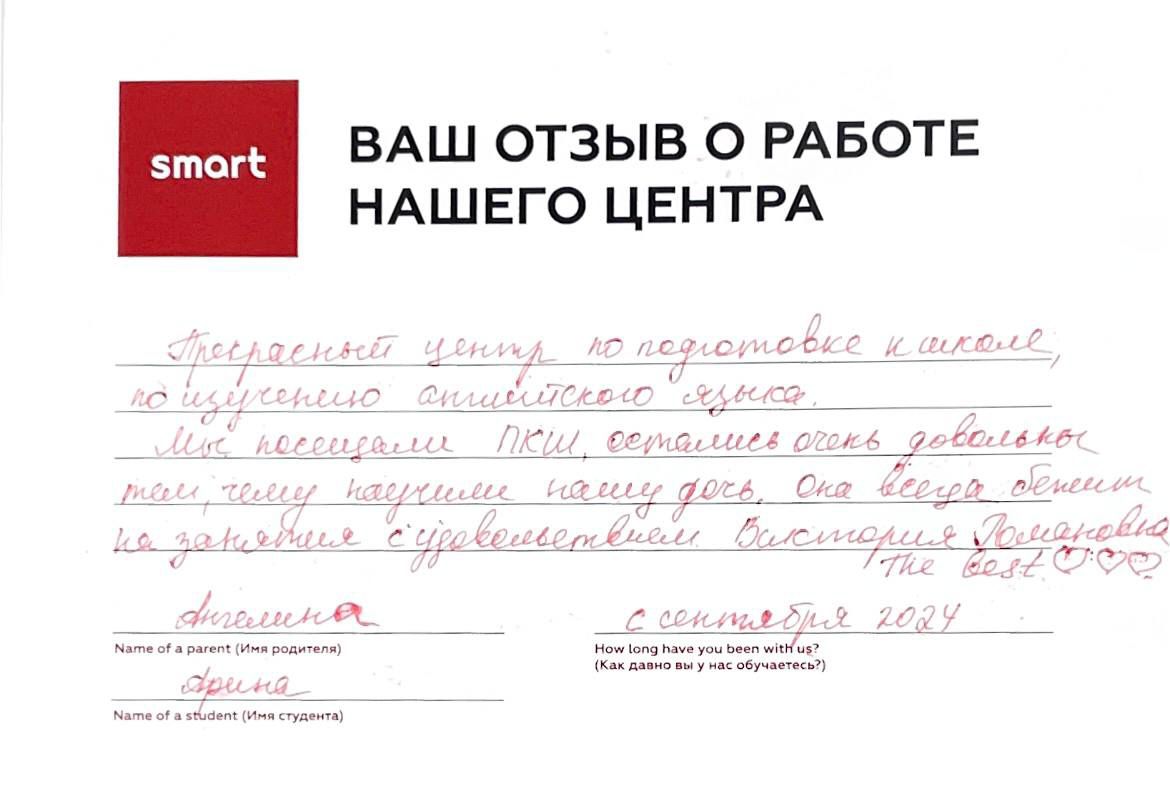 smart
ВАШ ОТЗЫВ О РАБОТЕ
НАШЕГО ЦЕНТРА
Прекрасный центр по подготовке к школе,
по изучению английского языка.
Мы посещали ПКШ, остались очень довольны
тем, чему научили нашу дочь. Она всегда бежит
на занятия с удовольствием. Виктория Романовна
The Best
Ангелина
Name of a parent (Имя родителя)
с сентября 2024
How long have you been with us?
(Как давно вы у нас обучаетесь?)
Арина
Name of a student (Имя студента)